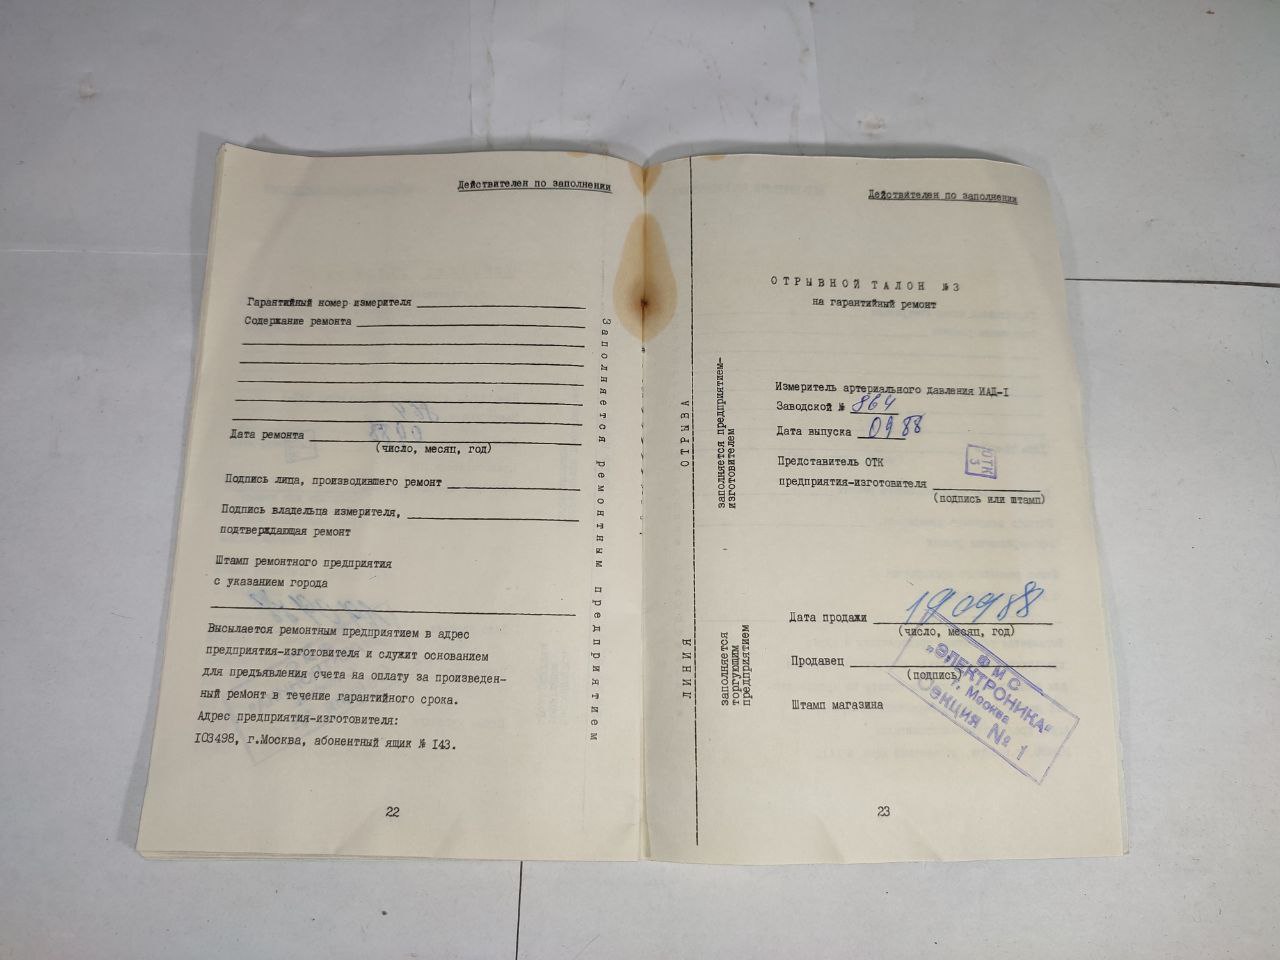 Действителен по заполнении
Гарантийный номер измерителя
Содержание ремонта
Дата ремонта
(число, месяц, год)
Подпись лица, производившего ремонт
Подпись владельца измерителя,
подтверждающая ремонт
Штамп ремонтного предприятия
с указанием города
Высылается ремонтным предприятием в адрес
предприятия-изготовителя и служит основанием
для предъявления счета на оплату за произведен-
ный ремонт в течение гарантийного срока.
Адрес предприятия-изготовителя:
103498, г.Москва, абонентный ящик № 143.
22
Заполняется ремонтным предприятием
ЛИНИЯ ОТРЫВА
Действителен по заполнении
ОТРЫВНОЙ ТАЛОН №3
на гарантийный ремонт
заполняется предприятием-
изготовителем
Измеритель артериального давления ИАД-I
Заводской № 864
Дата выпуска 09 88
Представитель ОТК
предприятия-изготовителя
(подпись или штамп)
ОТК
3
заполняется
торгующим
предприятием
Дата продажи 19 09 88
(число, месяц, год)
Продавец
(подпись)
Штамп магазина
ФМС
"ЭЛЕКТРОНИКА"
г. Москва
Секция № 1
23